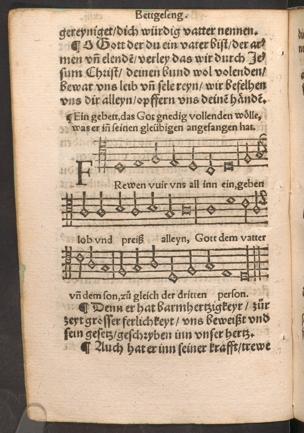 Bettgeseng.
gereyniget/dich würdig vatter nennen.
¶ O Gott der du ein vater bist/der ar⸗
men vn̄ elende/verley das wir durch Je⸗
sum Christ/deinen bund wol volenden/
bewar vns leib vn̄ sele reyn/wir befelhen
vns dir alleyn/opffern vns deinē hānde.
¶ Ein gebett,das Got gnedig vollenden wölle,
was er in̄ seinen gleübigen angefangen hat.
FRewen vuir vns all inn ein,geben
lob vnd preiß alleyn, Gott dem vatter
vn̄ dem son,zů gleich der dritten person.
¶ Denn er hat barmhertzigkeyt/zür
zeyt grosser ferlichkeyt/vns beweißt vnd
sein gesetz/geschryben inn vnser hertz.
¶ Auch hat er inn seiner krafft/trewe